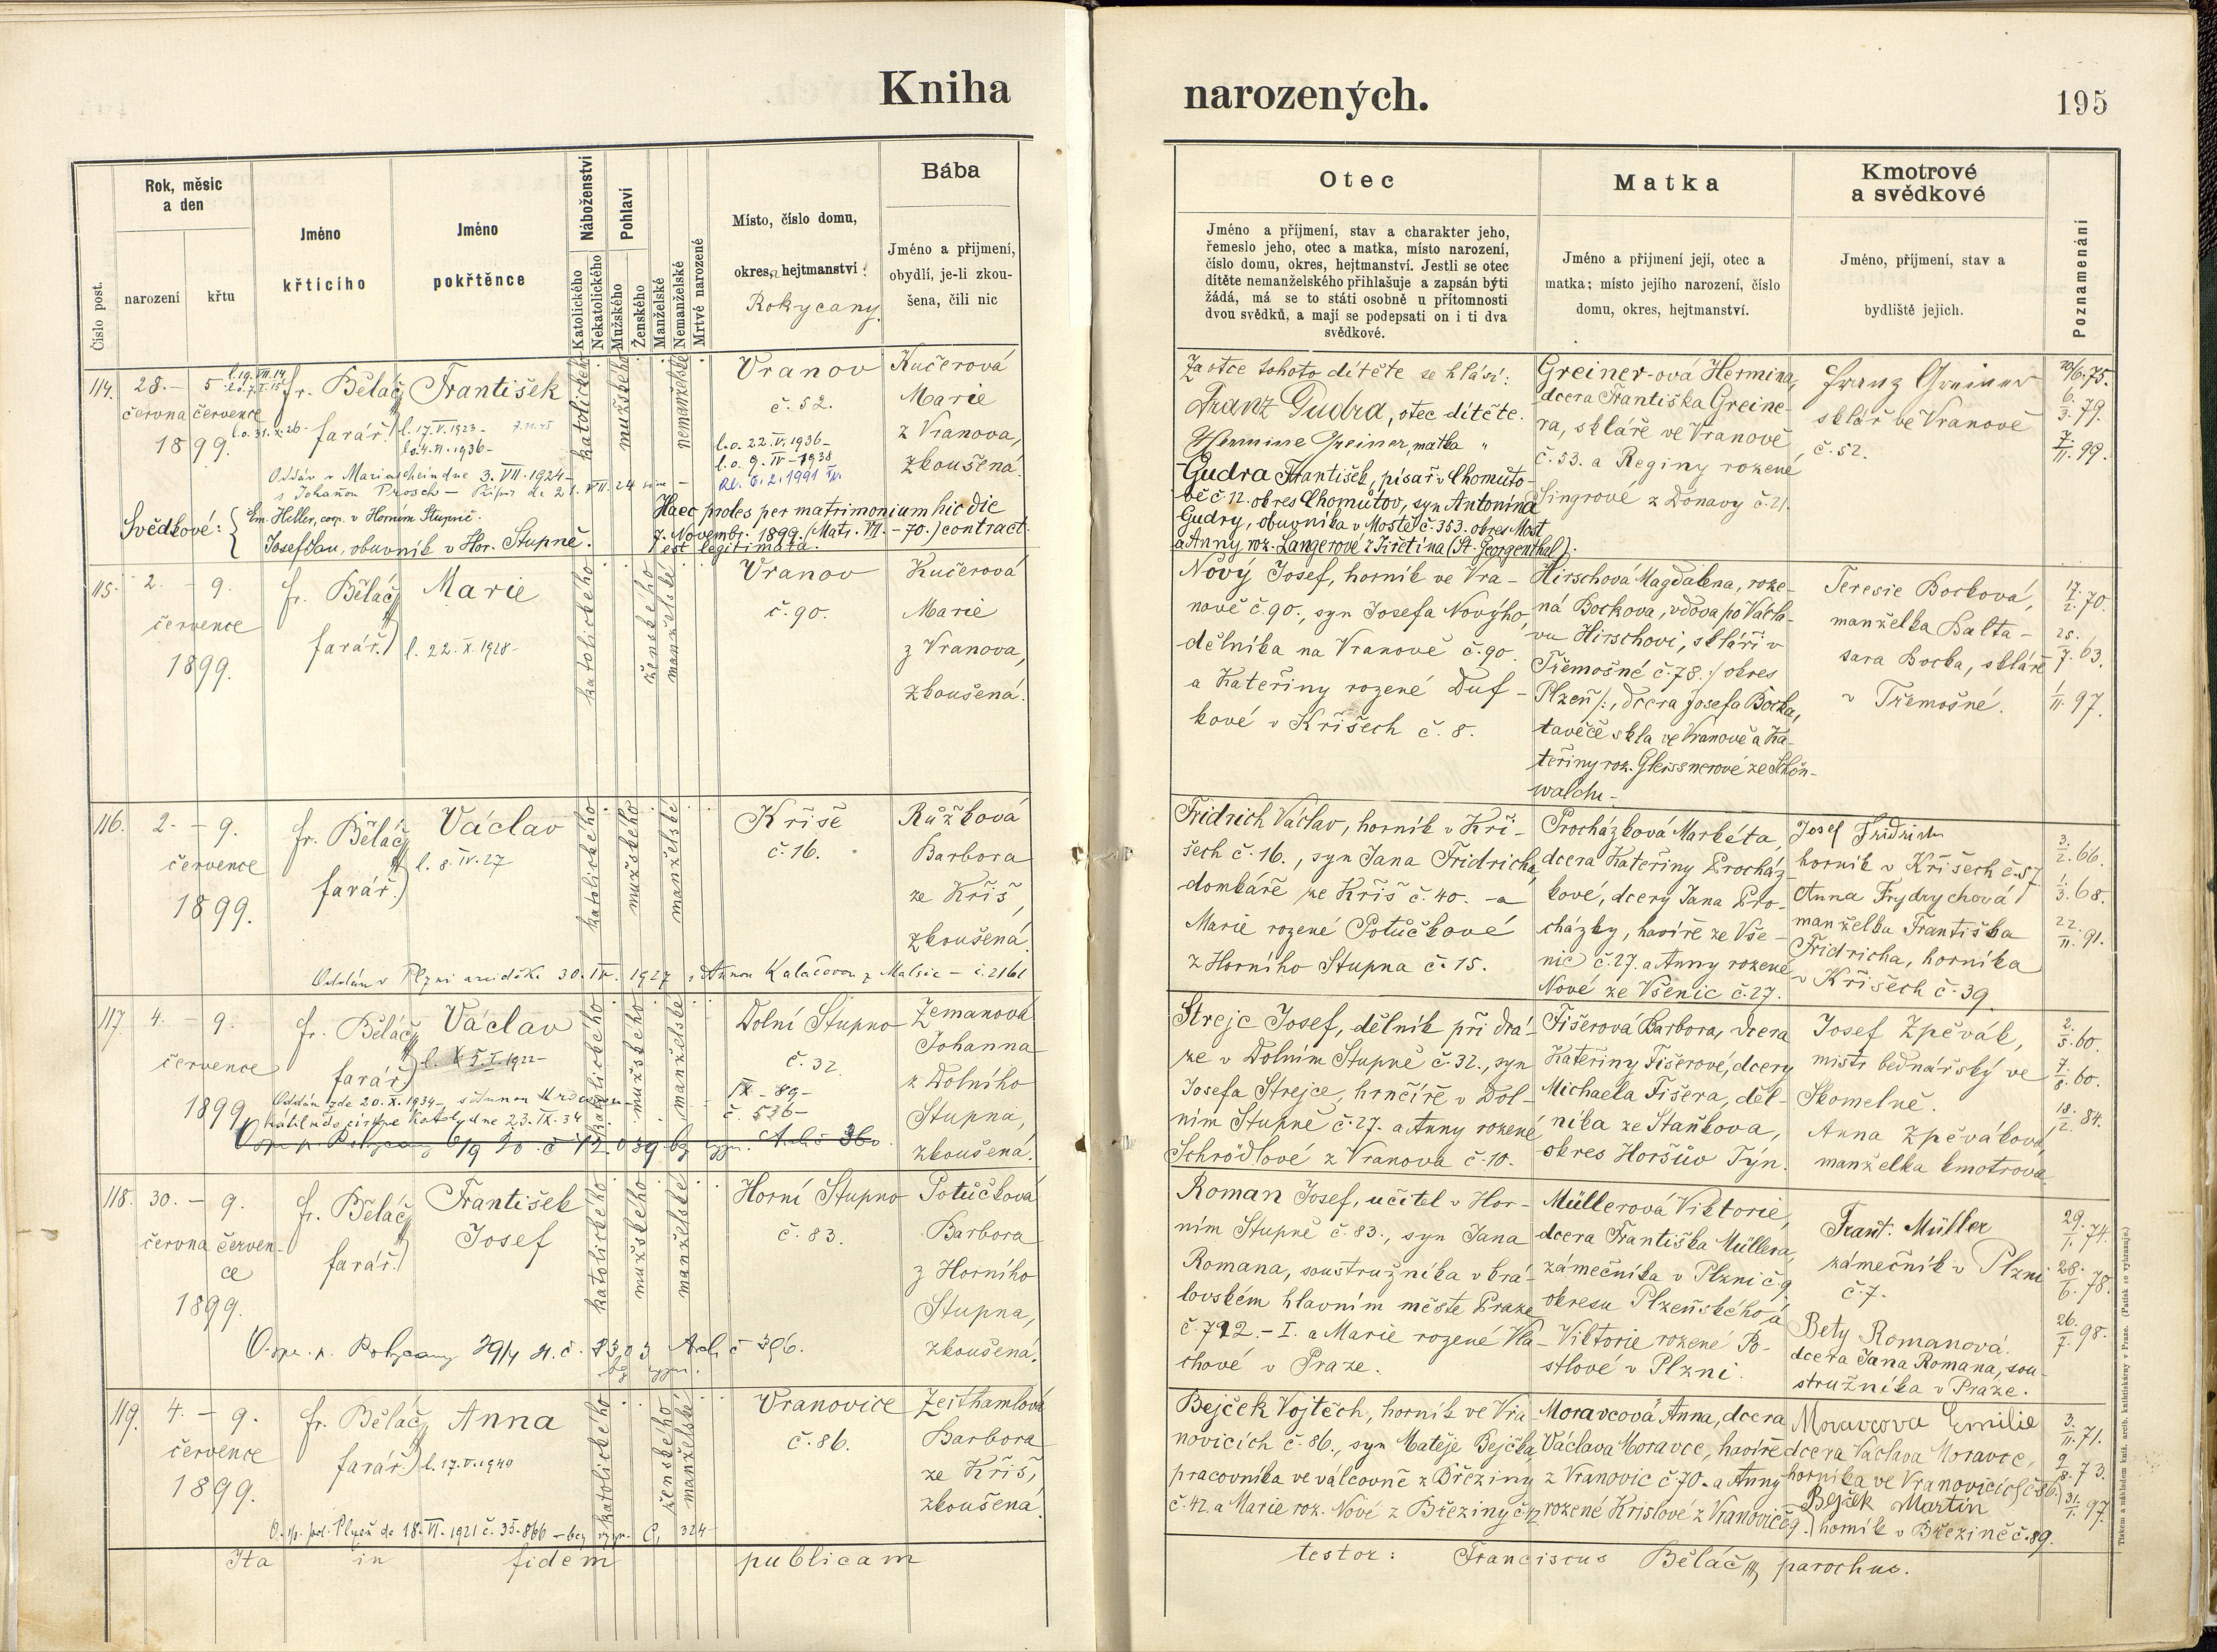 Kniha
narozených.
195
Číslo post.
Rok, měsíc
a den
narození
křtu
Jméno
křticího
Jméno
pokřtěnce
Náboženství
Katolického
Nekatolického
Pohlaví
Mužského
Ženského
Manželské
Nemanželské
Mrtvé narozené
Místo, číslo domu,
okres, hejtmanství:
Rokycany.
Bába
Jméno a přijmení,
obydlí, je-li zkou-
šena, čili nic
Otec
Jméno a příjmení, stav a charakter jeho,
řemeslo jeho, otec a matka, místo narození,
číslo domu, okres, hejtmanství. Jestli se otec
dítěte nemanželského přihlašuje a zapsán býti
žádá, má se to státi osobně u přítomnosti
dvou svědků, a mají se podepsati on i ti dva
svědkové.
Matka
Jméno a přijmení její, otec a
matka; místo jejího narození, číslo
domu, okres, hejtmanství.
Kmotrové
a svědkové
Jméno, příjmení, stav a
bydliště jejich.
Poznamenání
114.
28. – 5.
června července
1899.
fr. Běláč
farář.
František
l. 17.V.1923 –
katolického
mužského
nemanželské
Vranov
č. 52.
l.o. 22.V.1936 –
l.o. 9.IV – 1938
Kučerová
Marie
z Vranova,
zkoušená.
Oddán v Mariascheindne 3.VII.1924 –
Svědkové:
Em. Heller, coop. v Horním Stupně.
Josef Jau, obuvník v Hor. Stupně.
Haec proles per matrimonium hic die
7. Novembr. 1899. (Matr. VII. – 70.) contract.
est legitimata.
Za otce tohoto dítěte se hlásí:
Franz Gudra, otec dítěte.
Hermine Greiner, matka "
Gudra František, písař v Chomuto-
vě č. 12. okres Chomutov, syn Antonína
Gudry, obuvníka v Mostě č. 353. okres Most
a Anny roz. Langerové z Jiřetína (St. Georgenthal).
Greiner-ová Hermina,
dcera Františka Greine-
ra, skláře ve Vranově
č. 53. a Reginy rozené
Singrové z Donavy č. 21.
Franz Greiner
sklář ve Vranově
č. 52.
20/6. 75.
6./3. 79.
7./11. 99.
115.
2. – 9.
července
1899.
fr. Běláč
farář.
Marie
l. 22.X.1928 –
katolického
ženského
manželské
Vranov
č. 90.
Kučerová
Marie
z Vranova,
zkoušená.
Nový Josef, horník ve Vra-
nově č. 90., syn Josefa Nového,
dělníka na Vranově č. 90.
a Kateřiny rozené Duf-
kové v Křišech č. 8.
Hirschová Magdalena, roze-
ná Bockova, vdova po Václa-
vu Hirschovi, skláři v
Třemošné č. 78. /: okres
Plzeň :/, dcera Josefa Bocka,
taviče skla ve Vranově a Ka-
teřiny roz. Gleissnerové ze Schön-
waldu –
Teresie Bocková,
manželka Balta-
sara Bocka, skláře
v Třemošné.
17./2. 70.
25./7. 63.
1/11. 97.
116.
2. – 9.
července
1899.
fr. Běláč
farář.
Václav
l. 8.IV.27
katolického
mužského
manželské
Kříše
č. 16.
Růžková
Barbora
ze Kříš,
zkoušená.
Oddán v Plzni arciděk. 30.IV.1927 s Annou Kalačovou z Malsic –
Fridrich Václav, horník v Kří-
šech č. 16., syn Jana Fridricha,
domkáře ze Kříš č. 40. a
Marie rozené Potůčkové
z Horního Stupna č. 15.
Procházková Markéta,
dcera Kateřiny Procház-
kové, dcery Jana Pro-
cházky, havíře ze Vše-
nic č. 27. a Anny rozené
Nové ze Všenic č. 27.
Josef Fridrich
horník v Kříšech č. 57
Anna Frydrychová
manželka Františka
Fridricha, horníka
v Kříšech č. 39.
3./2. 66.
1./3. 68.
22./11. 91.
117.
4. – 9.
července
1899.
fr. Běláč
farář.
Václav
katolického
mužského
manželské
Dolní Stupno
č. 32.
IX – 89 –
č. 536 –
Zemanová
Johanna
z Dolního
Stupna,
zkoušená.
Strejc Josef, dělník při drá-
ze v Dolním Stupně č. 32., syn
Josefa Strejce, hrnčíře v Dol-
ním Stupně č. 27. a Anny rozené
Schrödlové z Vranova č. 10.
Fišerová Barbora, dcera
Kateřiny Fišerové, dcery
Michaela Fišera, děl-
níka ze Staňkova,
okres Horšův Týn.
Josef Zpěvák,
mistr bednářský ve
Skomelně.
Anna Zpěváková,
manželka kmotrova.
2./5. 60.
7./8. 60.
18./2. 84.
118.
30. – 9.
června červen-
ce
1899.
fr. Běláč
farář.
František
Josef
katolického
mužského
manželské
Horní Stupno
č. 83.
Potůčková
Barbora
z Horního
Stupna,
zkoušená.
Roman Josef, učitel v Hor-
ním Stupně č. 83., syn Jana
Romana, soustružníka v krá-
lovském hlavním městě Praze
č. 792. – I. a Marie rozené Vla-
chové v Praze.
Müllerová Viktorie,
dcera Františka Müllera,
zámečníka v Plzni č. 9
okresu Plzeňského, a
Viktorie rozené Po-
stlové v Plzni.
Frant. Müller
zámečník v Plzni
č. 7.
Bety Romanová.
dcera Jana Romana, sou-
stružníka v Praze.
29./1. 74.
28./6. 78.
26./7. 98.
119.
4. – 9.
července
1899.
fr. Běláč
farář.
Anna
l. 17.V.1940
katolického
ženského
manželské
Vranovice
č. 86.
Zeithamlová
Barbora
ze Kříš,
zkoušená.
O. sp. pol. Plzeň de 18.VI.1921 č. 35.866 –
Bejček Vojtěch, horník ve Vra-
novicích č. 86., syn Matěje Bejčka,
pracovníka ve válcovně z Březiny
č. 42 a Marie roz. Nové z Březiny č. 12
Moravcová Anna, dcera
Václava Moravce, havíře
z Vranovic č. 70. a Anny
rozené Krislové z Vranovic č. 9.
Moravcova Emilie
dcera Václava Moravce,
horníka ve Vranovicích č. 86.
Bejček Martin
horník v Březině č. 89.
3./11. 71.
2./8. 73.
31./1. 97.
Ita in fidem publicam
testor: Franciscus Běláč, parochus.